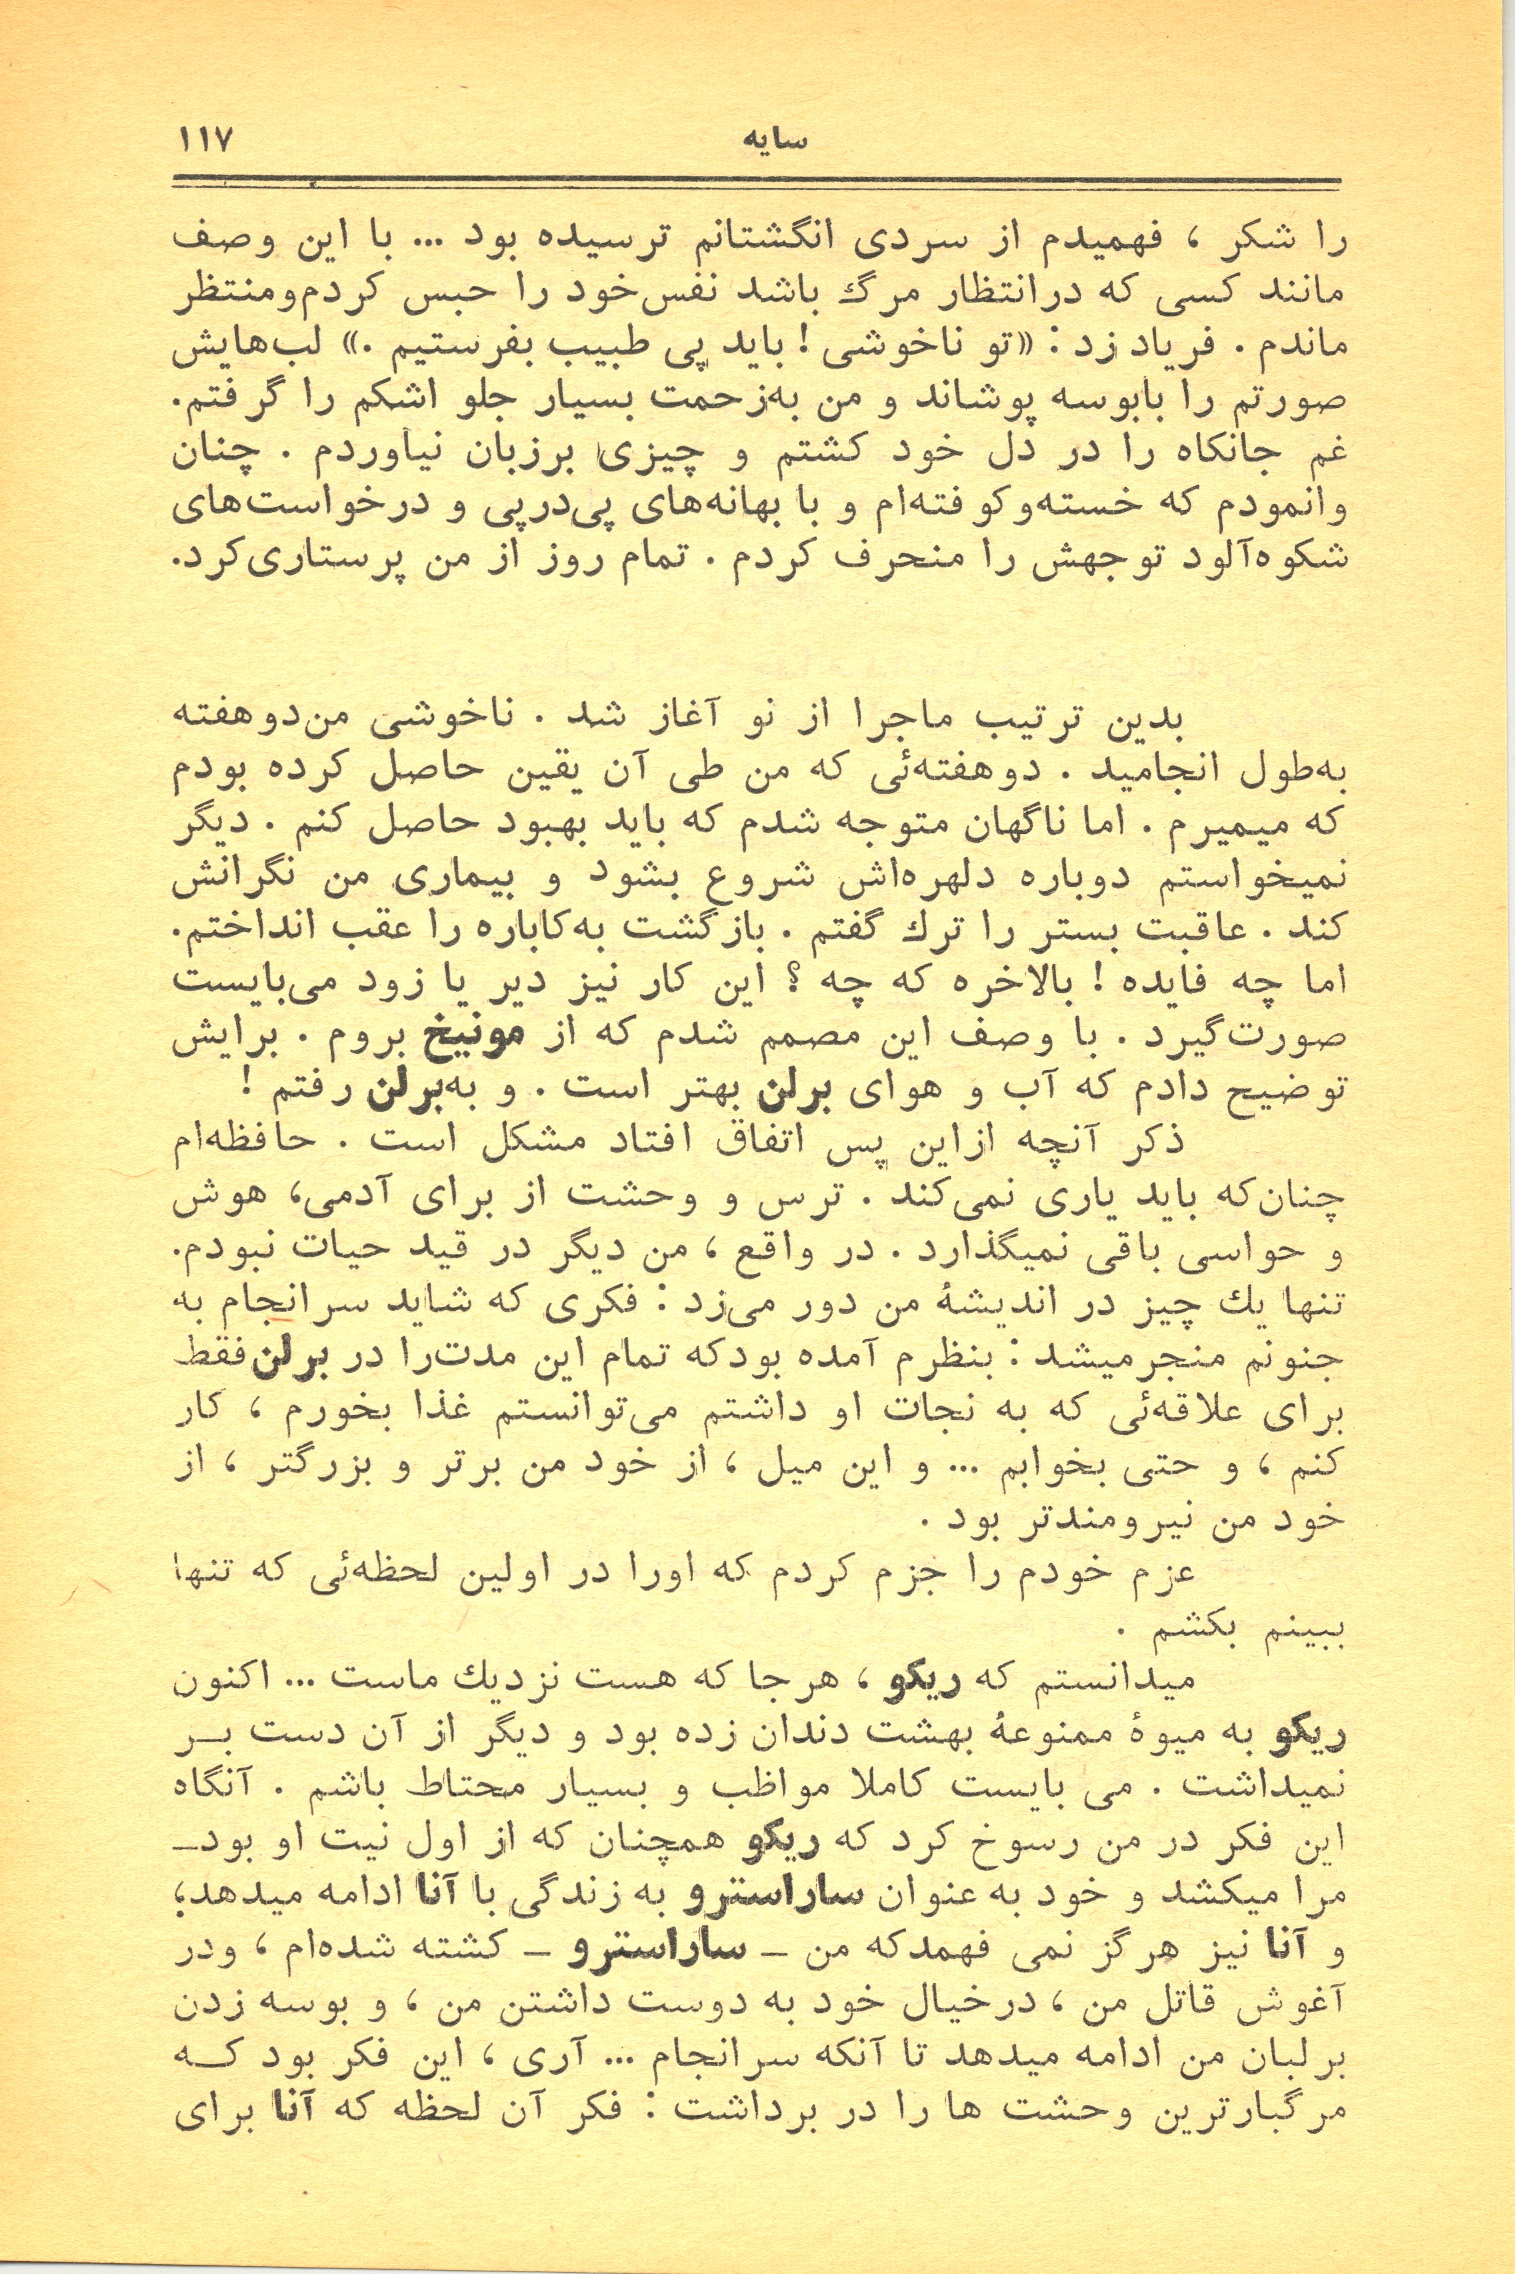 سایه ۱۱۷
را شکر ، فهمیدم از سردی انگشتانم ترسیده بود ... با این وصف
مانند کسی که درانتظار مرگ باشد نفس‌خود را حبس کردم‌ومنتظر
ماندم . فریاد زد : «تو ناخوشی ! باید پی طبیب بفرستیم .» لب‌هایش
صورتم را بابوسه پوشاند و من به‌زحمت بسیار جلو اشکم را گرفتم.
غم جانکاه را در دل خود کشتم و چیزی برزبان نیاوردم . چنان
وانمودم که خسته‌وکوفته‌ام و با بهانه‌های پی‌درپی و درخواست‌های
شکوه‌آلود توجهش را منحرف کردم . تمام روز از من پرستاری‌کرد.
بدین ترتیب ماجرا از نو آغاز شد . ناخوشی من‌دوهفته
به‌طول انجامید . دوهفته‌ئی که من طی آن یقین حاصل کرده بودم
که میمیرم . اما ناگهان متوجه شدم که باید بهبود حاصل کنم . دیگر
نمیخواستم دوباره دلهره‌اش شروع بشود و بیماری من نگرانش
کند . عاقبت بستر را ترك گفتم . بازگشت به‌کاباره را عقب انداختم.
اما چه فایده ! بالاخره که چه ؟ این کار نیز دیر یا زود می‌بایست
صورت‌گیرد . با وصف این مصمم شدم که از مونیخ بروم . برایش
توضیح دادم که آب و هوای برلن بهتر است . و به‌برلن رفتم !
ذکر آنچه ازاین پس اتفاق افتاد مشکل است . حافظه‌ام
چنان‌که باید یاری نمی‌کند . ترس و وحشت از برای آدمی، هوش
و حواسی باقی نمیگذارد . در واقع ، من دیگر در قید حیات نبودم.
تنها یك چیز در اندیشهٔ من دور می‌زد : فکری که شاید سرانجام به
جنونم منجرمیشد : بنظرم آمده بودکه تمام این مدت‌را در برلن‌فقط
برای علاقه‌ئی که به نجات او داشتم می‌توانستم غذا بخورم ، کار
کنم ، و حتی بخوابم ... و این میل ، از خود من برتر و بزرگتر ، از
خود من نیرومندتر بود .
عزم خودم را جزم کردم که اورا در اولین لحظه‌ئی که تنها
ببینم بکشم .
میدانستم که ریکو ، هرجا که هست نزدیك ماست ... اکنون
ریکو به میوهٔ ممنوعهٔ بهشت دندان زده بود و دیگر از آن دست بــر
نمیداشت . می بایست کاملا مواظب و بسیار محتاط باشم . آنگاه
این فکر در من رسوخ کرد که ریکو همچنان که از اول نیت او بود_
مرا میکشد و خود به عنوان ساراسترو به زندگی با آنا ادامه میدهد؛
و آنا نیز هرگز نمی فهمدکه من _ ساراسترو _ کشته شده‌ام ، ودر
آغوش قاتل من ، درخیال خود به دوست داشتن من ، و بوسه زدن
برلبان من ادامه میدهد تا آنکه سرانجام ... آری ، این فکر بود کــه
مرگبارترین وحشت ها را در برداشت : فکر آن لحظه که آنا برای